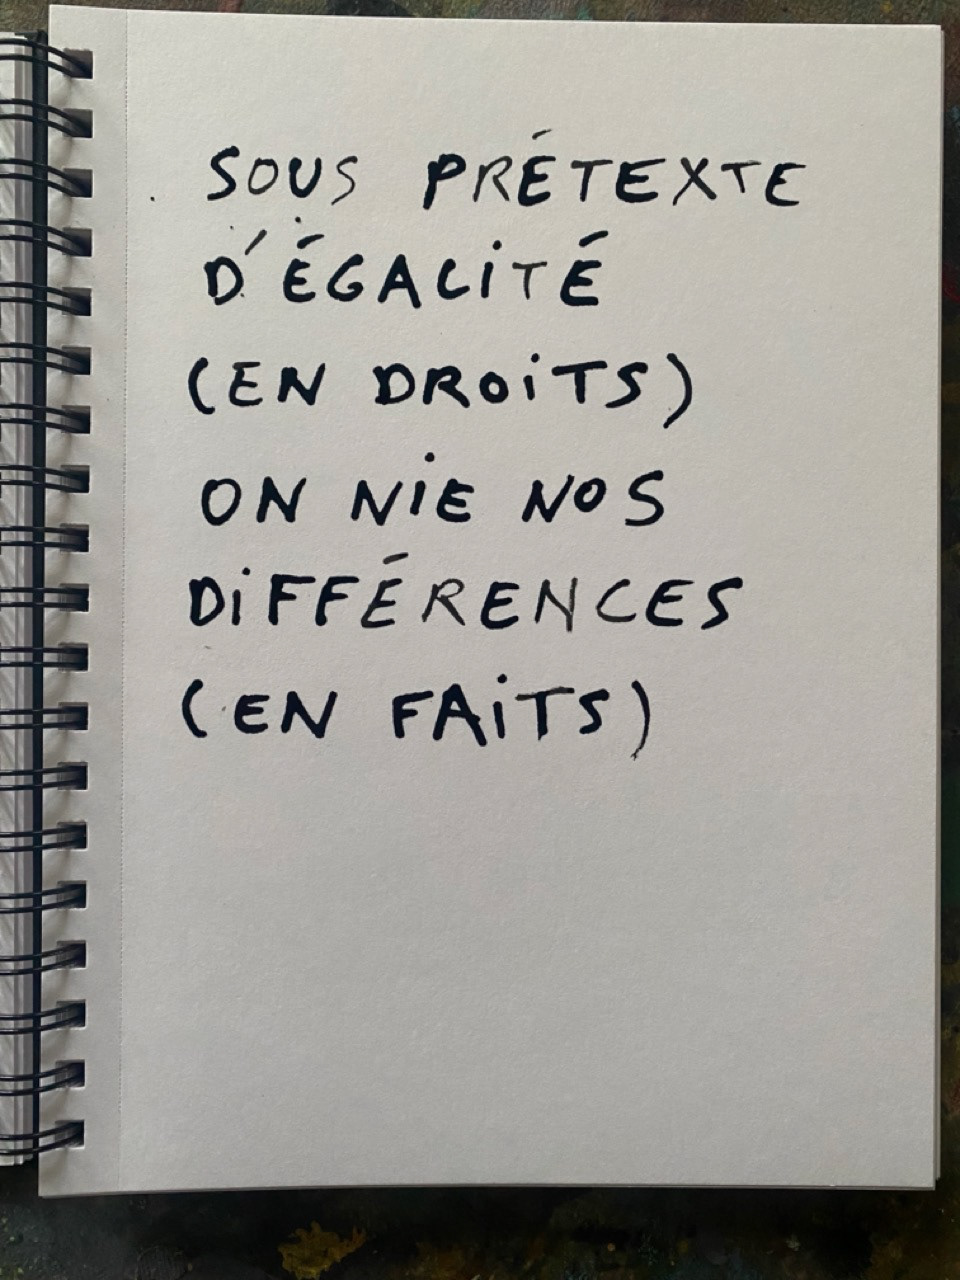 SOUS PRÉTEXTE
D'ÉGALiTÉ
(EN DROiTS)
ON NiE NOS
DiFFÉRENCES
(EN FAiTS)